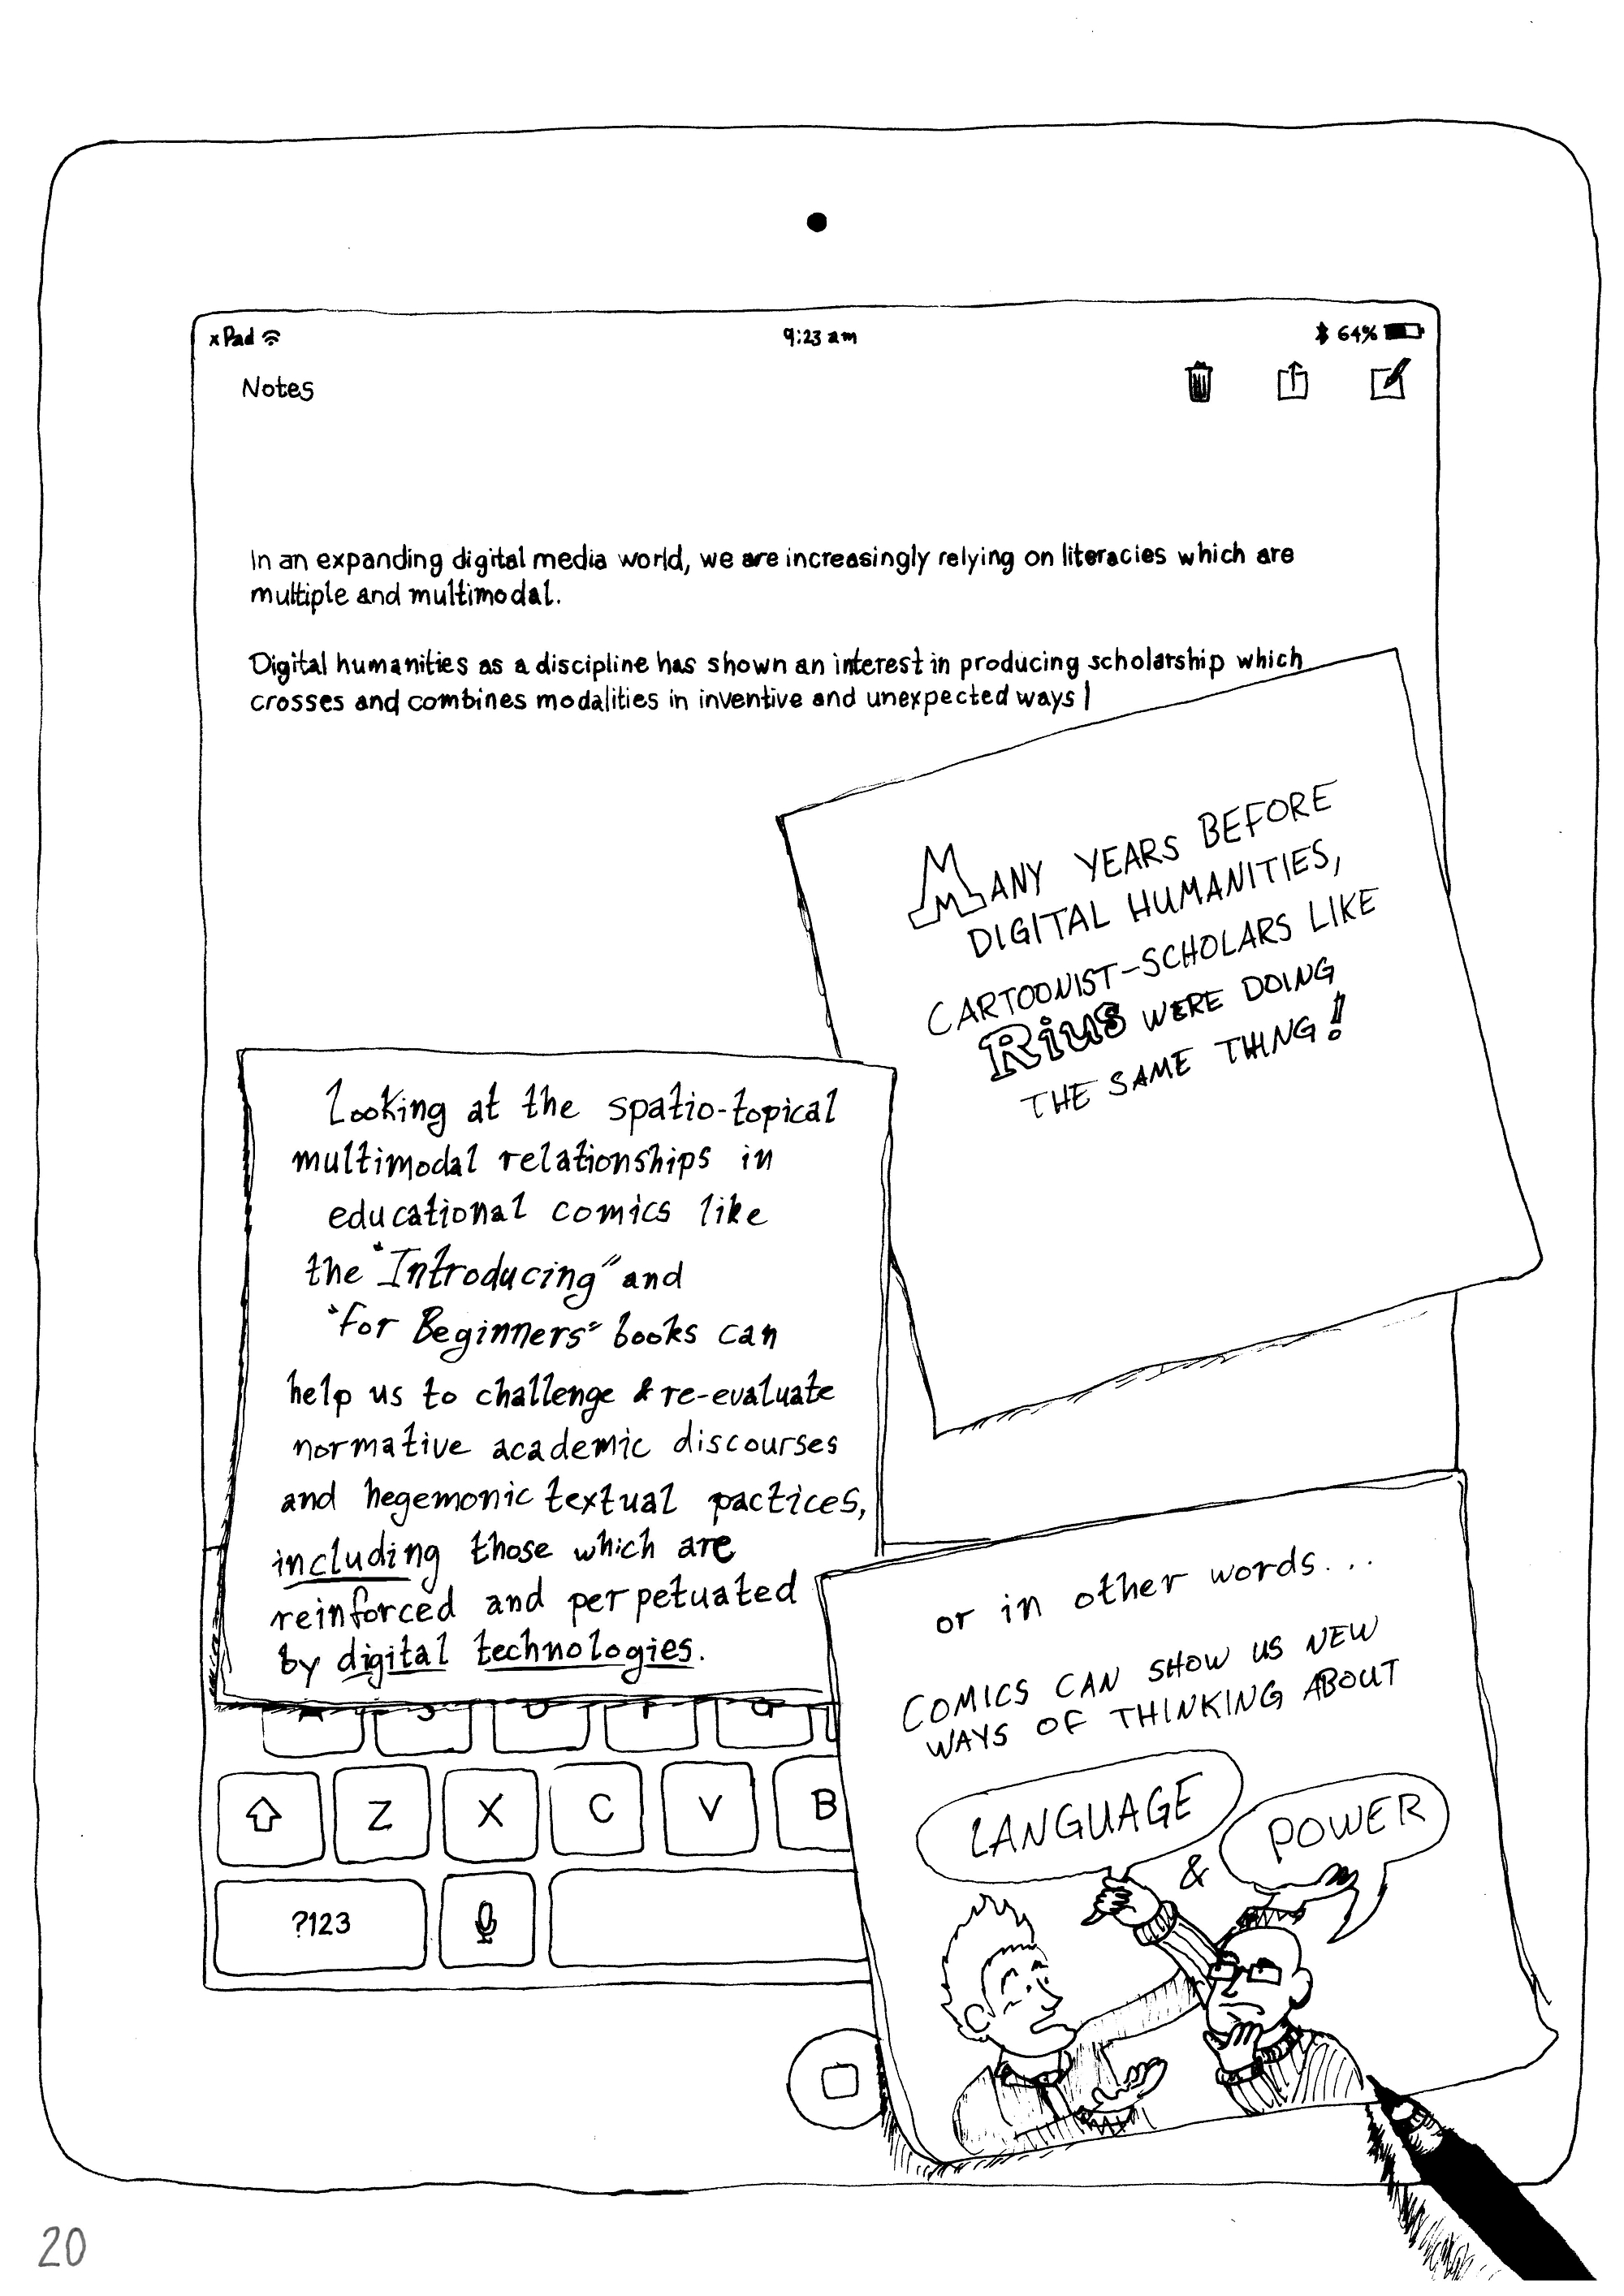 xPad 9:23 am 64%
Notes
In an expanding digital media world, we are increasingly relying on literacies which are
multiple and multimodal.
Digital humanities as a discipline has shown an interest in producing scholarship which
crosses and combines modalities in inventive and unexpected ways
MANY YEARS BEFORE
DIGITAL HUMANITIES,
CARTOONIST-SCHOLARS LIKE
Rius WERE DOING
THE SAME THING!
Looking at the spatio-topical
multimodal relationships in
educational comics like
the "Introducing" and
"For Beginners" books can
help us to challenge & re-evaluate
normative academic discourses
and hegemonic textual pactices,
including those which are
reinforced and perpetuated
by digital technologies.
or in other words...
COMICS CAN SHOW US NEW
WAYS OF THINKING ABOUT
LANGUAGE
&
POWER
Z X C V B
?123
20